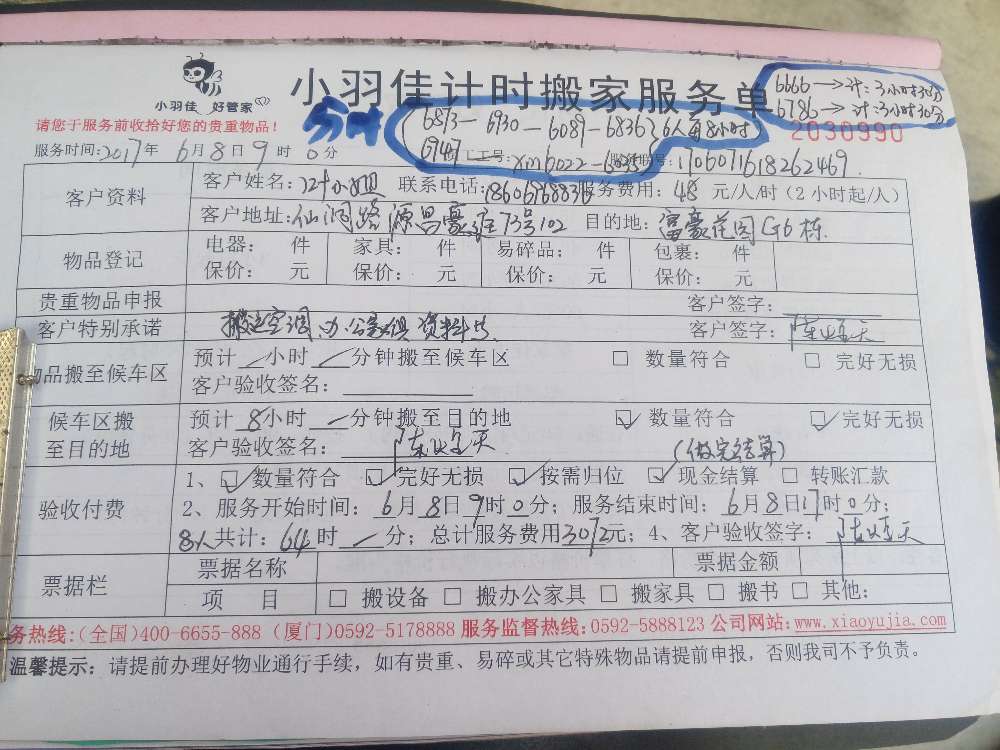 小羽佳 好管家
小羽佳计时搬家服务单
6666→计:3小时30分
6786→计:3小时30分
请您于服务前收拾好您的贵重物品!
分时
6873-6930-6089-6836 6人每8小时
6747
2030990
服务时间:2017年6月8日9时0分
工号:xm6022
客户资料
客户姓名: 联系电话: 服务费用:48元/人/时(2小时起/人)
客户地址:仙洞路源昌豪庭73号102 目的地:富豪花园G6栋
物品登记
电器: 件 家具: 件 易碎品: 件 包裹: 件
保价: 元 保价: 元 保价: 元 保价: 元
贵重物品申报 客户签字:
客户特别承诺 搬运空调 办公家俱 资料 客户签字:
物品搬至候车区
预计 小时 分钟搬至候车区 □ 数量符合 □ 完好无损
客户验收签名:
候车区搬至目的地
预计8小时一分钟搬至目的地 ☑ 数量符合 ☑ 完好无损
客户验收签名: (做完结算)
验收付费
1、☑数量符合 ☑完好无损 ☑按需归位 ☑现金结算 □ 转账汇款
2、服务开始时间:6月8日9时0分;服务结束时间:6月8日17时0分;
8人共计:64时一分;总计服务费用3072元;4、客户验收签字:
票据栏
票据名称 票据金额
项 目 □ 搬设备 □ 搬办公家具 □ 搬家具 □ 搬书 □ 其他:
务热线:(全国)400-6655-888 (厦门)0592-5178888 服务监督热线:0592-5888123 公司网站:www.xiaoyujia.com
温馨提示:请提前办理好物业通行手续,如有贵重、易碎或其它特殊物品请提前申报,否则我司不予负责。